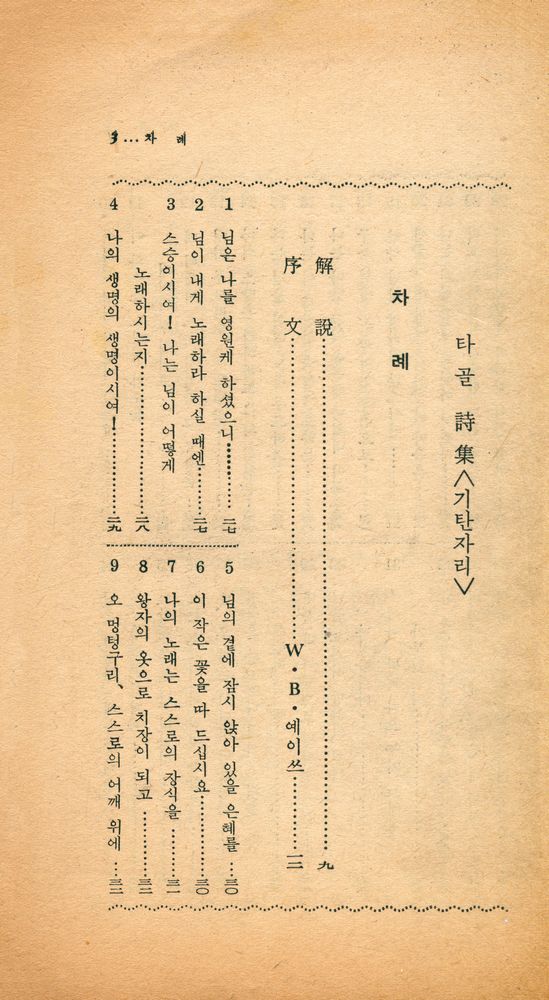 3…차 례
타골 詩集<기탄자리>
차 례
解 說……九
序 文……W·B·예이쓰……一二
1 님은 나를 영원케 하셨으니……二七
2 님이 내게 노래하라 하실 때엔……二七
3 스승이시여! 나는 님이 어떻게
노래하시는지……二八
4 나의 생명의 생명이시여!……二九
5 님의 곁에 잠시 앉아 있을 은혜를…三〇
6 이 작은 꽃을 따 드십시요……三〇
7 나의 노래는 스스로의 장식을……三一
8 왕자의 옷으로 치장이 되고……三二
9 오 멍텅구리、스스로의 어깨 위에…三二